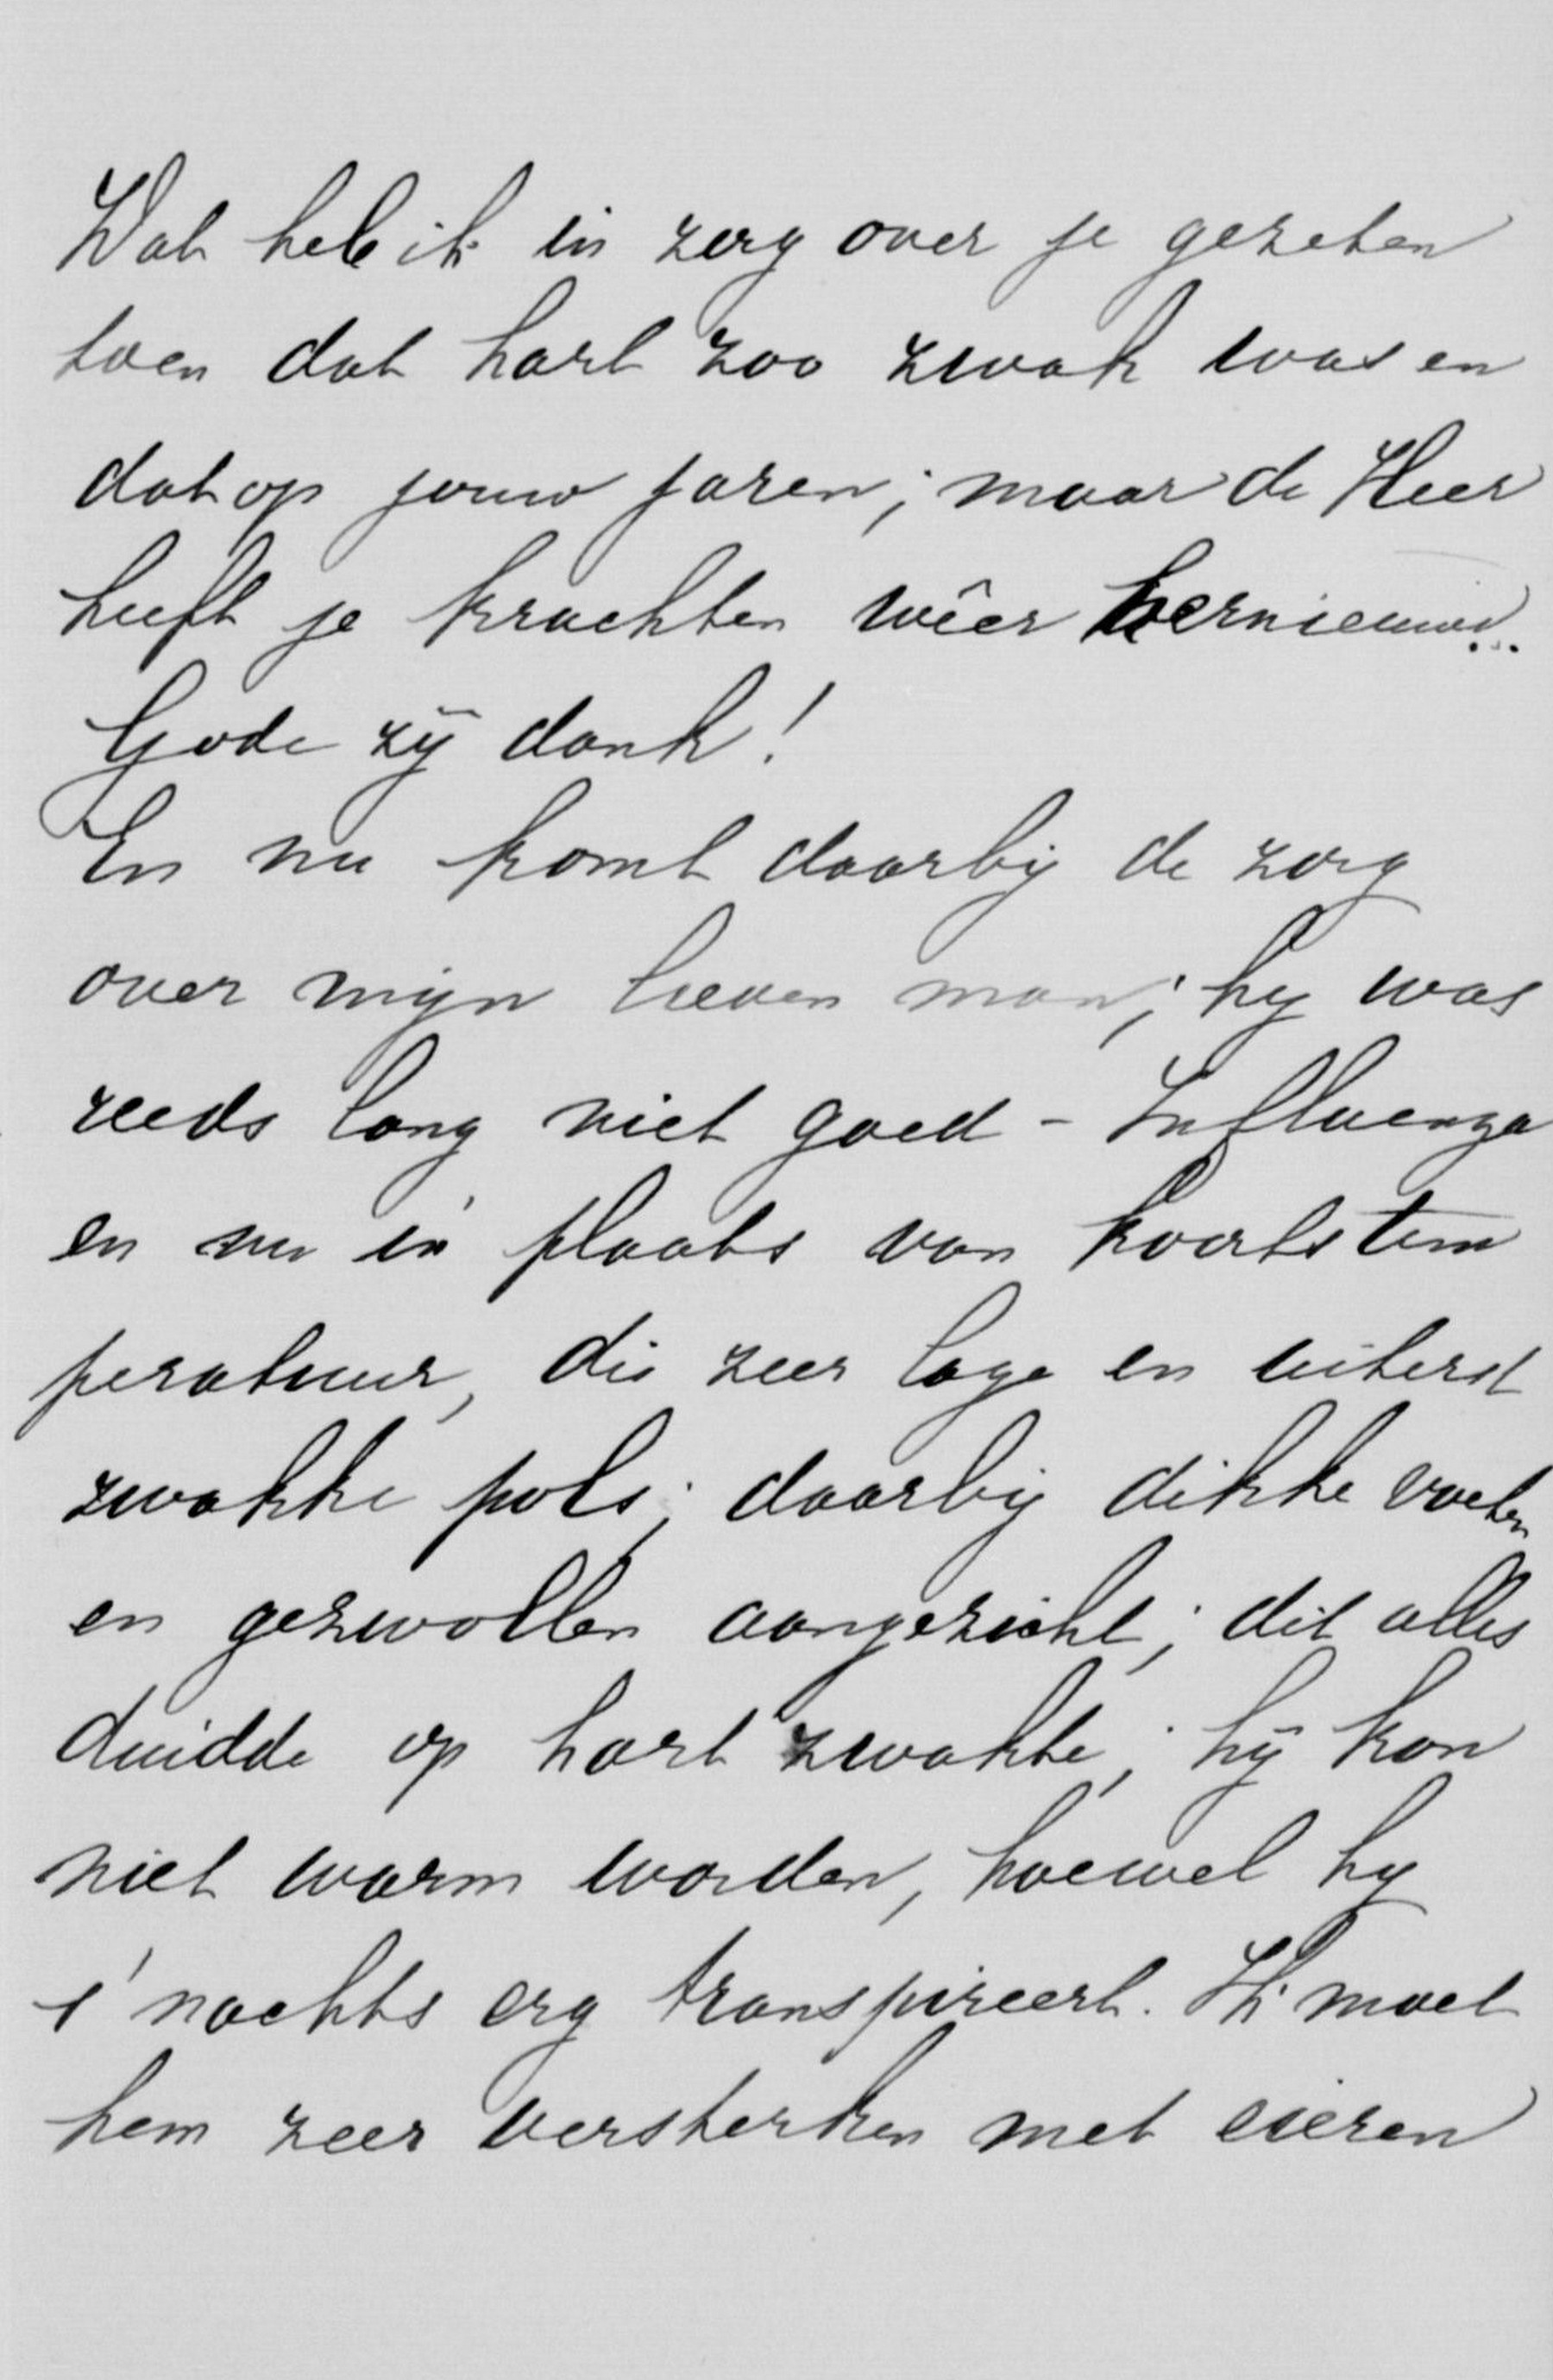 Wat heb ik in zorg over je gezeten
toen dat hart zoo zwak was en
dat op jouw jaren; maar de Heer
heeft je krachten wêer hernieuwd.
Gode zij dank!
En nu komt daarbij de zorg
over mijn lieven man; hij was
reeds lang niet goed - Influenza
en nu in plaats van koortstem
peratuur, die zeer lage en uiterst
zwakke pols; daarbij dikke voeten
en gezwollen aangezicht; dit alles
duidde op hart zwakte; hij kon
niet warm worden, hoewel hij
s' nachts erg transpireert. Ik moet
hem zeer versterken met eieren